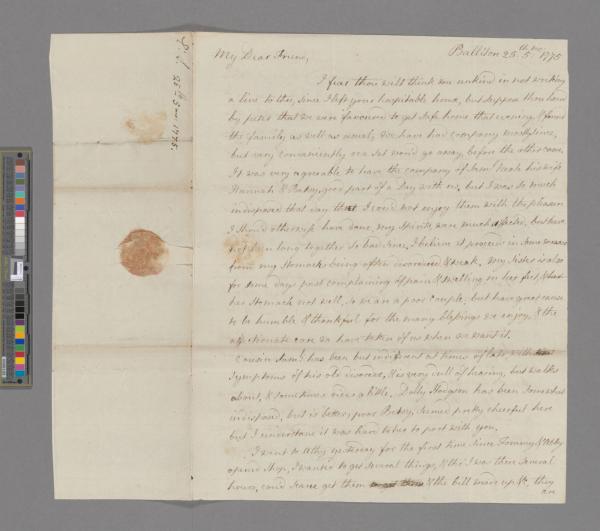 Ballitore 25th. 5 mo. 1775
My Dear Friend,
I fear thou wilt think me unkind in not writing
a line to thee, since I left your hospitable home, but suppose thou heard
by that we were favoured to get safe home that evening, & found
the family, as well as usual, we have had company mostly since,
but very conveniently one set would go away, before the other came,
It was very agreeable to have the company of his wife
Hannah & Betsy, good part of a day with us, but I was so much
indisposed that day that I could not enjoy them with the pleasure
I should otherwise have done, my Spirits were much affected, but have
not been long together so bad since, I believe it proceeds in some measure
from my Stomach being often disordered & weak. my Sister is also
for some days past complaining of pain & swelling in her feet, & that
her Stomach not well, so we are a poor couple, but have great cause
to be humble & thankful for the many blessings we enjoy, & the
affectionate care we have taken of us when we want it.
Cousin has been but indifferent at times of late, with
symptoms of his old disorder, & is very dull of hearing, but walks
about, & sometimes rides a little. Dolly Hodgson has been somewhat
indisposed, but is better; poor Betsy, seemed pretty cheerful here
but I understand it was hard to her to part with you,
I went to Athy yesterday for the first time since Tommy & Molly
opened Shop, I wanted to get several things, & tho' I was there several
hours, could scarce get them & the bill made up &c. they
are
25th 5 mo 1775.